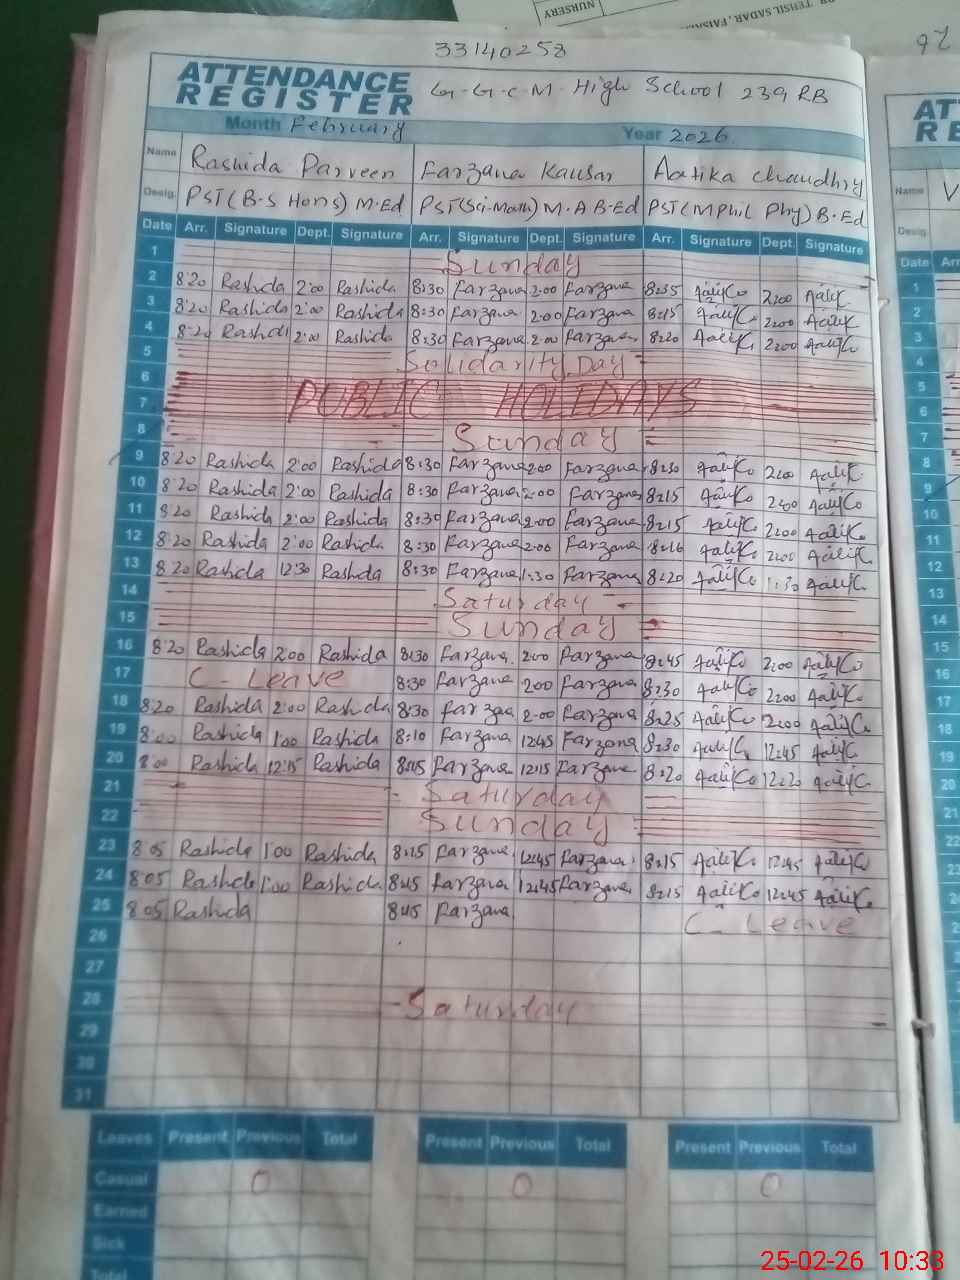 TEHSIL SADAR, FAISA
NURSERY
33140258
ATTENDANCE REGISTER G.G.C.M. High School 239 RB
Month February Year 2026
Name Rashida Parveen Farzana Kausar Aatika Chaudhry
Desig. PST(B.S Hons) M.Ed PST(Sci-Math) M.A B-Ed PST(MPhil Phy) B.Ed
Date Arr. Signature Dept. Signature Arr. Signature Dept. Signature Arr. Signature Dept. Signature
1 Sunday
2 8:20 Rashida 2:00 Rashida 8:30 Farzana 2:00 Farzana 8:35 2:00
3 8:20 Rashida 2:00 Rashida 8:30 Farzana 2:00 Farzana 8:15 2:00
4 8:20 Rashida 2:00 Rashida 8:30 Farzana 2:00 Farzana 8:20 2:00
5 Solidarity Day
6
7 PUBLIC HOLIDAYS
8 Sunday
9 8:20 Rashida 2:00 Rashida 8:30 Farzana 2:00 Farzana 8:30 2:00
10 8:20 Rashida 2:00 Rashida 8:30 Farzana 2:00 Farzana 8:15 2:00
11 8:20 Rashida 2:00 Rashida 8:30 Farzana 2:00 Farzana 8:15 2:00
12 8:20 Rashida 2:00 Rashida 8:30 Farzana 2:00 Farzana 8:16 2:00
13 8:20 Rashida 12:30 Rashida 8:30 Farzana 1:30 Farzana 8:20 1:30
14 Saturday
15 Sunday
16 8:20 Rashida 2:00 Rashida 8:30 Farzana 2:00 Farzana 8:45 2:00
17 C-Leave 8:30 Farzana 2:00 Farzana 8:30 2:00
18 8:20 Rashida 2:00 Rashida 8:30 Farzana 2:00 Farzana 8:25 2:00
19 8:00 Rashida 1:00 Rashida 8:10 Farzana 12:45 Farzana 8:30 12:45
20 8:00 Rashida 12:15 Rashida 8:15 Farzana 12:15 Farzana 8:20 12:20
21 Saturday
22 Sunday
23 8:05 Rashida 1:00 Rashida 8:15 Farzana 12:45 Farzana 8:15 12:45
24 8:05 Rashida 1:00 Rashida 8:15 Farzana 12:45 Farzana 8:15 12:45
25 8:05 Rashida 8:15 Farzana C-Leave
26
27
28 Saturday
29
30
31
Leaves Present Previous Total Present Previous Total Present Previous Total
Casual 0 0 0
Earned
Sick
Total
25-02-26 10:33